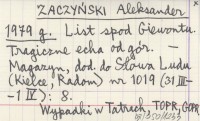 ZACZYŃSKI Aleksander
1979 g. List spod Giewontu.
Tragiczne echa od gór. —
Magazyn, dod. do Słowa Ludu
(Kielce, Radom) nr 1019 (31 III-
-1 IV): 8.
Wypadki w Tatrach, TOPR, GOPR